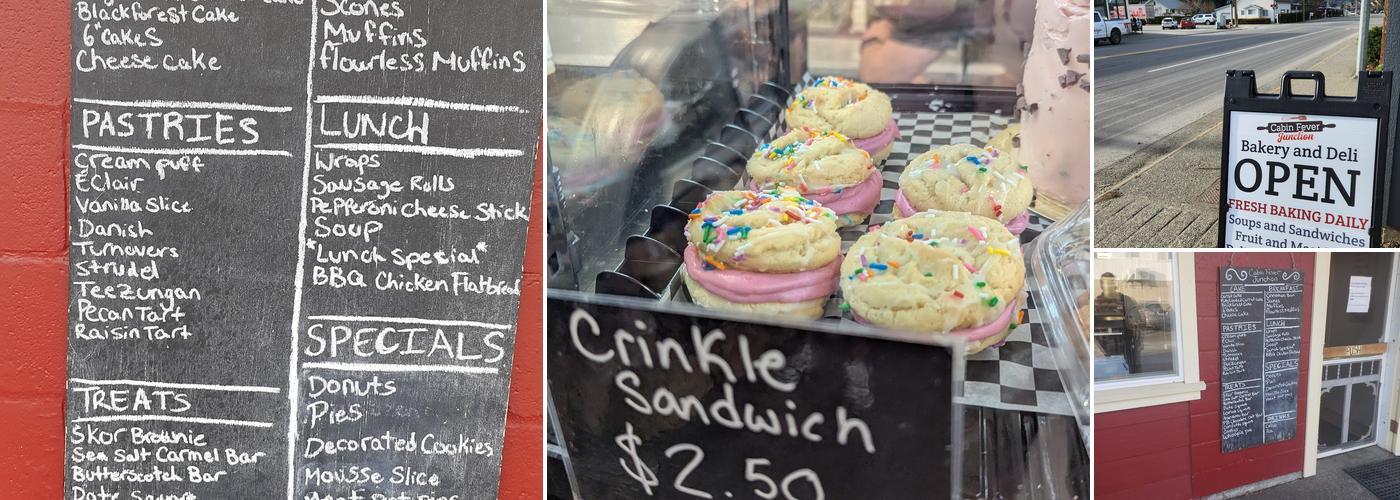 Blackforest Cake
6" cakes
Cheese cake
PASTRIES
Cream puff
Eclair
Vanilla Slice
Danish
Turnovers
Strudel
Teezungan
Pecan Tart
Raisin Tart
TREATS
Skor Brownie
Sea Salt Carmel Bar
Butterscotch Bar
Date Square
Scones
Muffins
flourless Muffins
LUNCH
Wraps
Sausage Rolls
Pepperoni Cheese Stick
Soup
*Lunch Special*
BBQ Chicken Flatbread
SPECIALS
Donuts
Pies
Decorated Cookies
Mousse Slice
Crinkle
Sandwich
$2.50
Cabin Fever
Junction
Bakery and Deli
OPEN
FRESH BAKING DAILY
Soups and Sandwiches
Fruit and
Cabin Fever
Junction
CAKE
BREAKFAST
PASTRIES
LUNCH
SPECIALS
TREATS
DRINKS